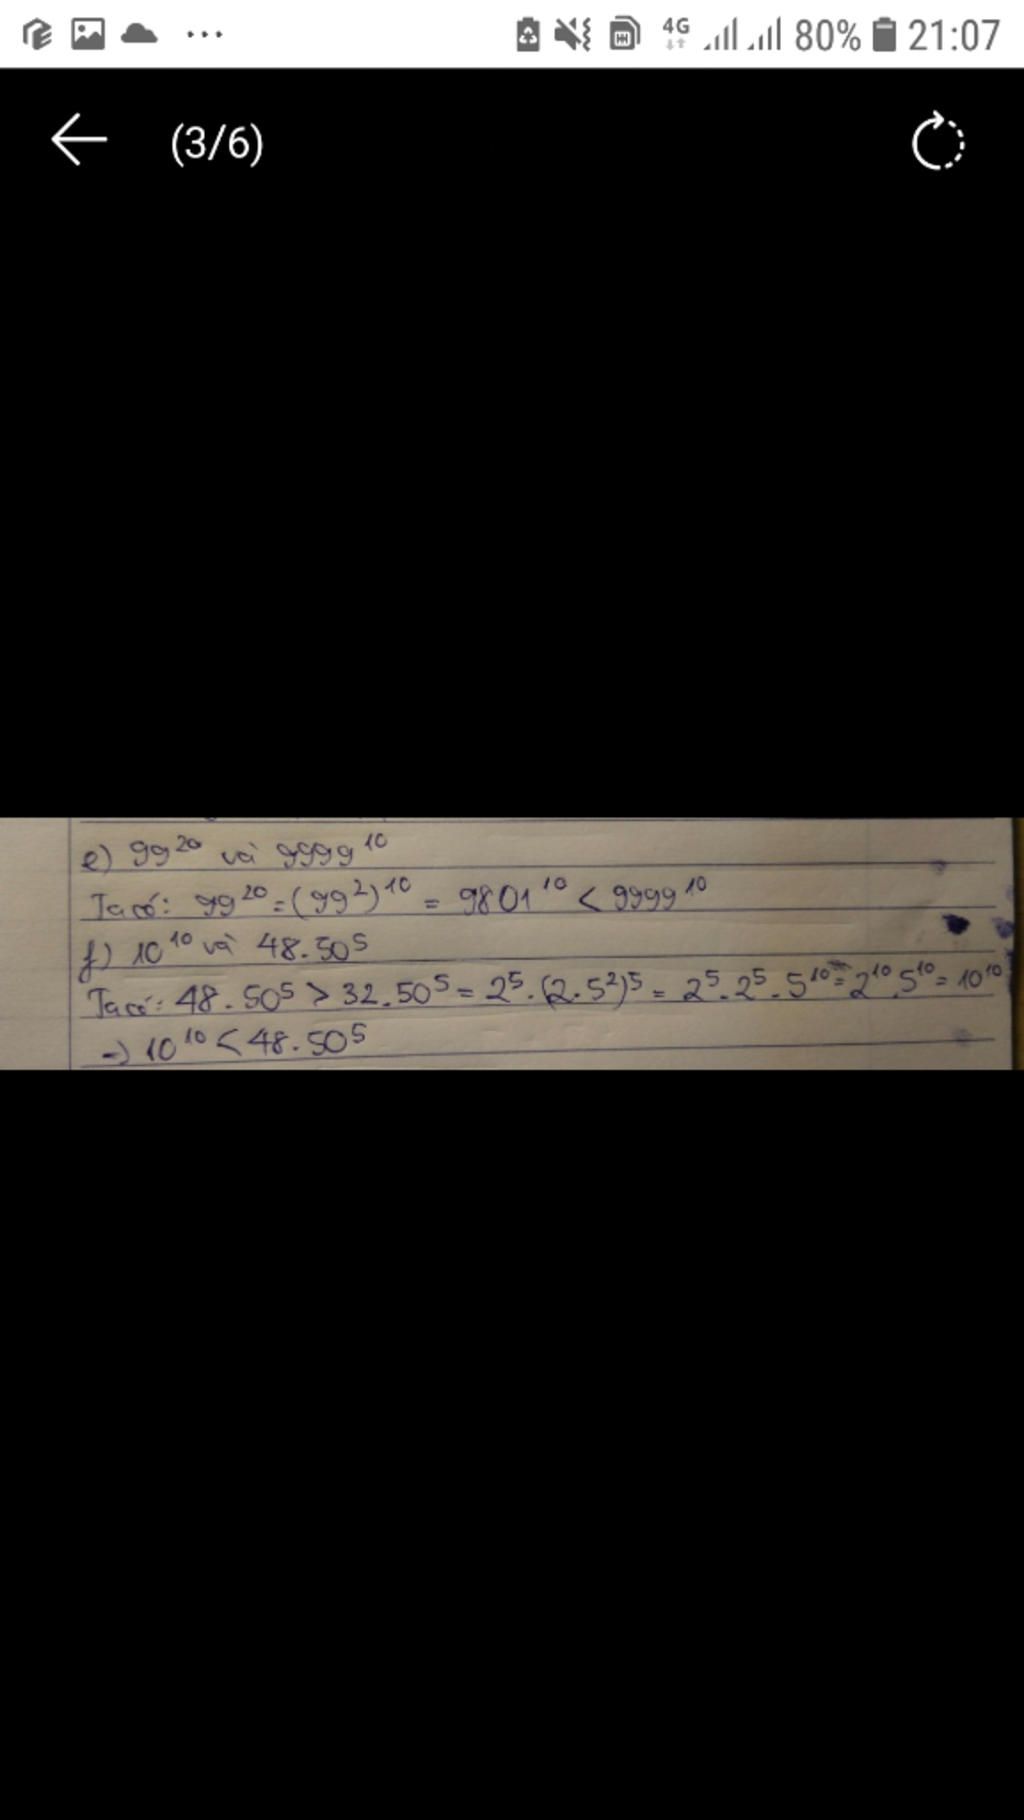 4G 80% 21:07
(3/6)
e) 99²⁰ và 9999¹⁰
Ta có: 99²⁰ = (99²)¹⁰ = 9801¹⁰ < 9999¹⁰
f) 10¹⁰ và 48.50⁵
Ta có: 48.50⁵ > 32.50⁵ = 2⁵.(2.5²)⁵ = 2⁵.2⁵.5¹⁰ = 2¹⁰.5¹⁰ = 10¹⁰
→ 10¹⁰ < 48.50⁵